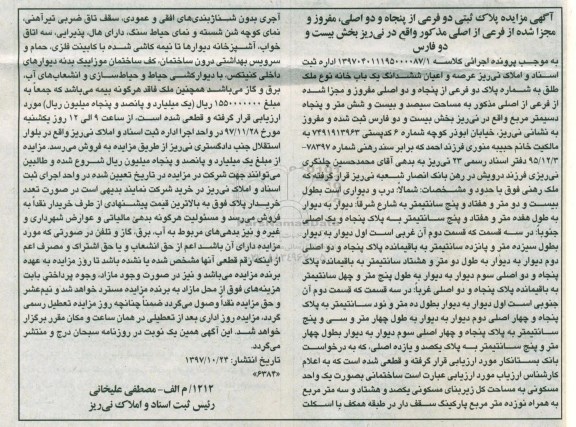 آگهی مزایده پلاک ثبتی دو فرعی از پنجاه و دو اصلی، مفروز و
مجزا شده از فرعی از اصلی مذکور واقع در نی‌ریز بخش بیست و
دو فارس
به موجب پرونده اجرائی کلاسه ۱۳۹۷۰۴۰۱۱۱۹۵۰۰۰۰۸۷/۱ اداره ثبت
اسناد و املاک نی‌ریز عرصه و اعیان ششدانگ یک باب خانه نوع ملک
طلق به شماره پلاک دو فرعی از پنجاه و دو اصلی مفروز و مجزا شده
از فرعی از اصلی مذکور به مساحت سیصد و بیست و شش متر و پنجاه
دسیمتر مربع واقع در نی‌ریز بخش بیست و دو فارس ثبت شده و مفروز
به نشانی نی‌ریز، خیابان ابوذر کوچه شماره ۶ کدپستی ۷۴۹۱۹۱۳۹۶۳ به
مالکیت خانم حبیبه منوری فرزند احمد که برابر سند رهنی شماره ۷۸۳۹۷-
۹۵/۱۲/۳ دفتر اسناد رسمی ۲۳ نی‌ریز به بدهی آقای محمدحسین چلنگری
نی‌ریزی فرزند درویش در رهن بانک انصار شعبه نی‌ریز قرار گرفته که
ملک رهنی فوق با حدود و مشخصات: شمالاً: درب و دیواری است بطول
بیست و دو متر و هفتاد و پنج سانتیمتر به شارع شرقاً: دیوار به دیوار
به طول هفده متر و هفتاد و پنج سانتیمتر به پلاک پنجاه و یک اصلی
جنوباً: در سه قسمت که قسمت دوم آن غربی است اول دیوار به دیوار
بطول سیزده متر و پانزده سانتیمتر به باقیمانده پلاک پنجاه و دو اصلی
دوم دیوار به دیوار به طول دو متر و هشتاد سانتیمتر به باقیمانده پلاک
پنجاه و دو اصلی سوم دیوار به دیوار به طول پنج متر و چهل سانتیمتر
به باقیمانده پلاک پنجاه و دو اصلی غرباً: در سه قسمت که قسمت دوم آن
جنوبی است اول دیوار به دیوار بطول ده متر و نود سانتیمتر به پلاک
پنجاه و چهار اصلی دوم دیوار به دیوار به طول چهار متر و سی و پنج
سانتیمتر به پلاک پنجاه و چهار اصلی سوم دیوار به دیوار بطول چهار
متر و بیست سانتیمتر به پلاک یکصد و یازده اصلی، که به درخواست
بانک بستانکار مورد ارزیابی قرار گرفته و قطعی شده است که به اعلام
کارشناس ارزیاب مورد ارزیابی عبارت است ساختمانی بصورت یک واحد
مسکونی به مساحت کل زیربنای مسکونی یکصد و هشتاد و سه متر مربع
به همراه نوزده متر مربع پارکینگ سقف دار در طبقه همکف با اسکلت
آجری بدون شناژبندی‌های افقی و عمودی، سقف تاق ضربی تیرآهنی،
نمای کوچه شن شسته و نمای حیاط سنگ، دارای هال، پذیرایی، سه اتاق
خواب، آشپزخانه دیوارها تا نیمه کاشی شده با کابینت فلزی، حمام و
سرویس بهداشتی درون ساختمان، کف ساختمان موزاییک بدنه دیوارهای
داخلی کنیتکس، با دیوارکشی حیاط و حیاط‌سازی و انشعاب‌های آب،
برق و گاز می‌باشد همچنین ملک فاقد هرگونه بیمه می‌باشد که جمعاً به
مبلغ ۱۵۵۰۰۰۰۰۰۰ ریال (یک میلیارد و پانصد و پنجاه میلیون ریال) مورد
ارزیابی قرار گرفته و قطعی شده است، از ساعت ۹ الی ۱۲ روز یکشنبه
مورخ ۹۷/۱۱/۲۸ در واحد اجرا اداره ثبت اسناد و املاک نی‌ریز واقع در بلوار
استقلال جنب دادگستری نی‌ریز از طریق مزایده به فروش می‌رسد. مزایده
از مبلغ یک میلیارد و پانصد و پنجاه میلیون ریال شروع شده و طالبین
می‌توانند جهت شرکت در مزایده در تاریخ تعیین شده در واحد اجرای ثبت
اسناد و املاک نی‌ریز در خرید شرکت نمایند بدیهی است در صورت تعدد
خریدار پلاک فوق به بالاترین قیمت پیشنهادی از طرف خریدار نقداً به
فروش می‌رسد و مسئولیت هرگونه بدهی مالیاتی و عوارض شهرداری و
غیره و نیز بدهی‌های مربوط به آب، برق، گاز و تلفن در صورتی که مورد
مزایده دارای آن باشد اعم از حق انشعاب و یا حق اشتراک و مصرف اعم
از اینکه رقم قطعی آنها مشخص شده یا نشده باشد تا روز مزایده به عهده
برنده مزایده می‌باشد و نیز در صورت وجود مازاد، وجوه پرداختی بابت
هزینه‌های فوق از محل مازاد به برنده مزایده مسترد خواهد شد و نیم‌عشر
و حق مزایده نقداً وصول می‌گردد ضمناً چنانچه روز مزایده تعطیل رسمی
گردد، مزایده روز اداری بعد از تعطیلی در همان ساعت و مکان مقرر برگزار
خواهد شد. این آگهی همین یک نوبت در روزنامه سبحان درج و منتشر
می‌گردد.
تاریخ انتشار: ۱۳۹۷/۱۰/۲۴
«۶۳۸۳»
۱۲۱۲/م الف- مصطفی علیخانی
رئیس ثبت اسناد و املاک نی‌ریز